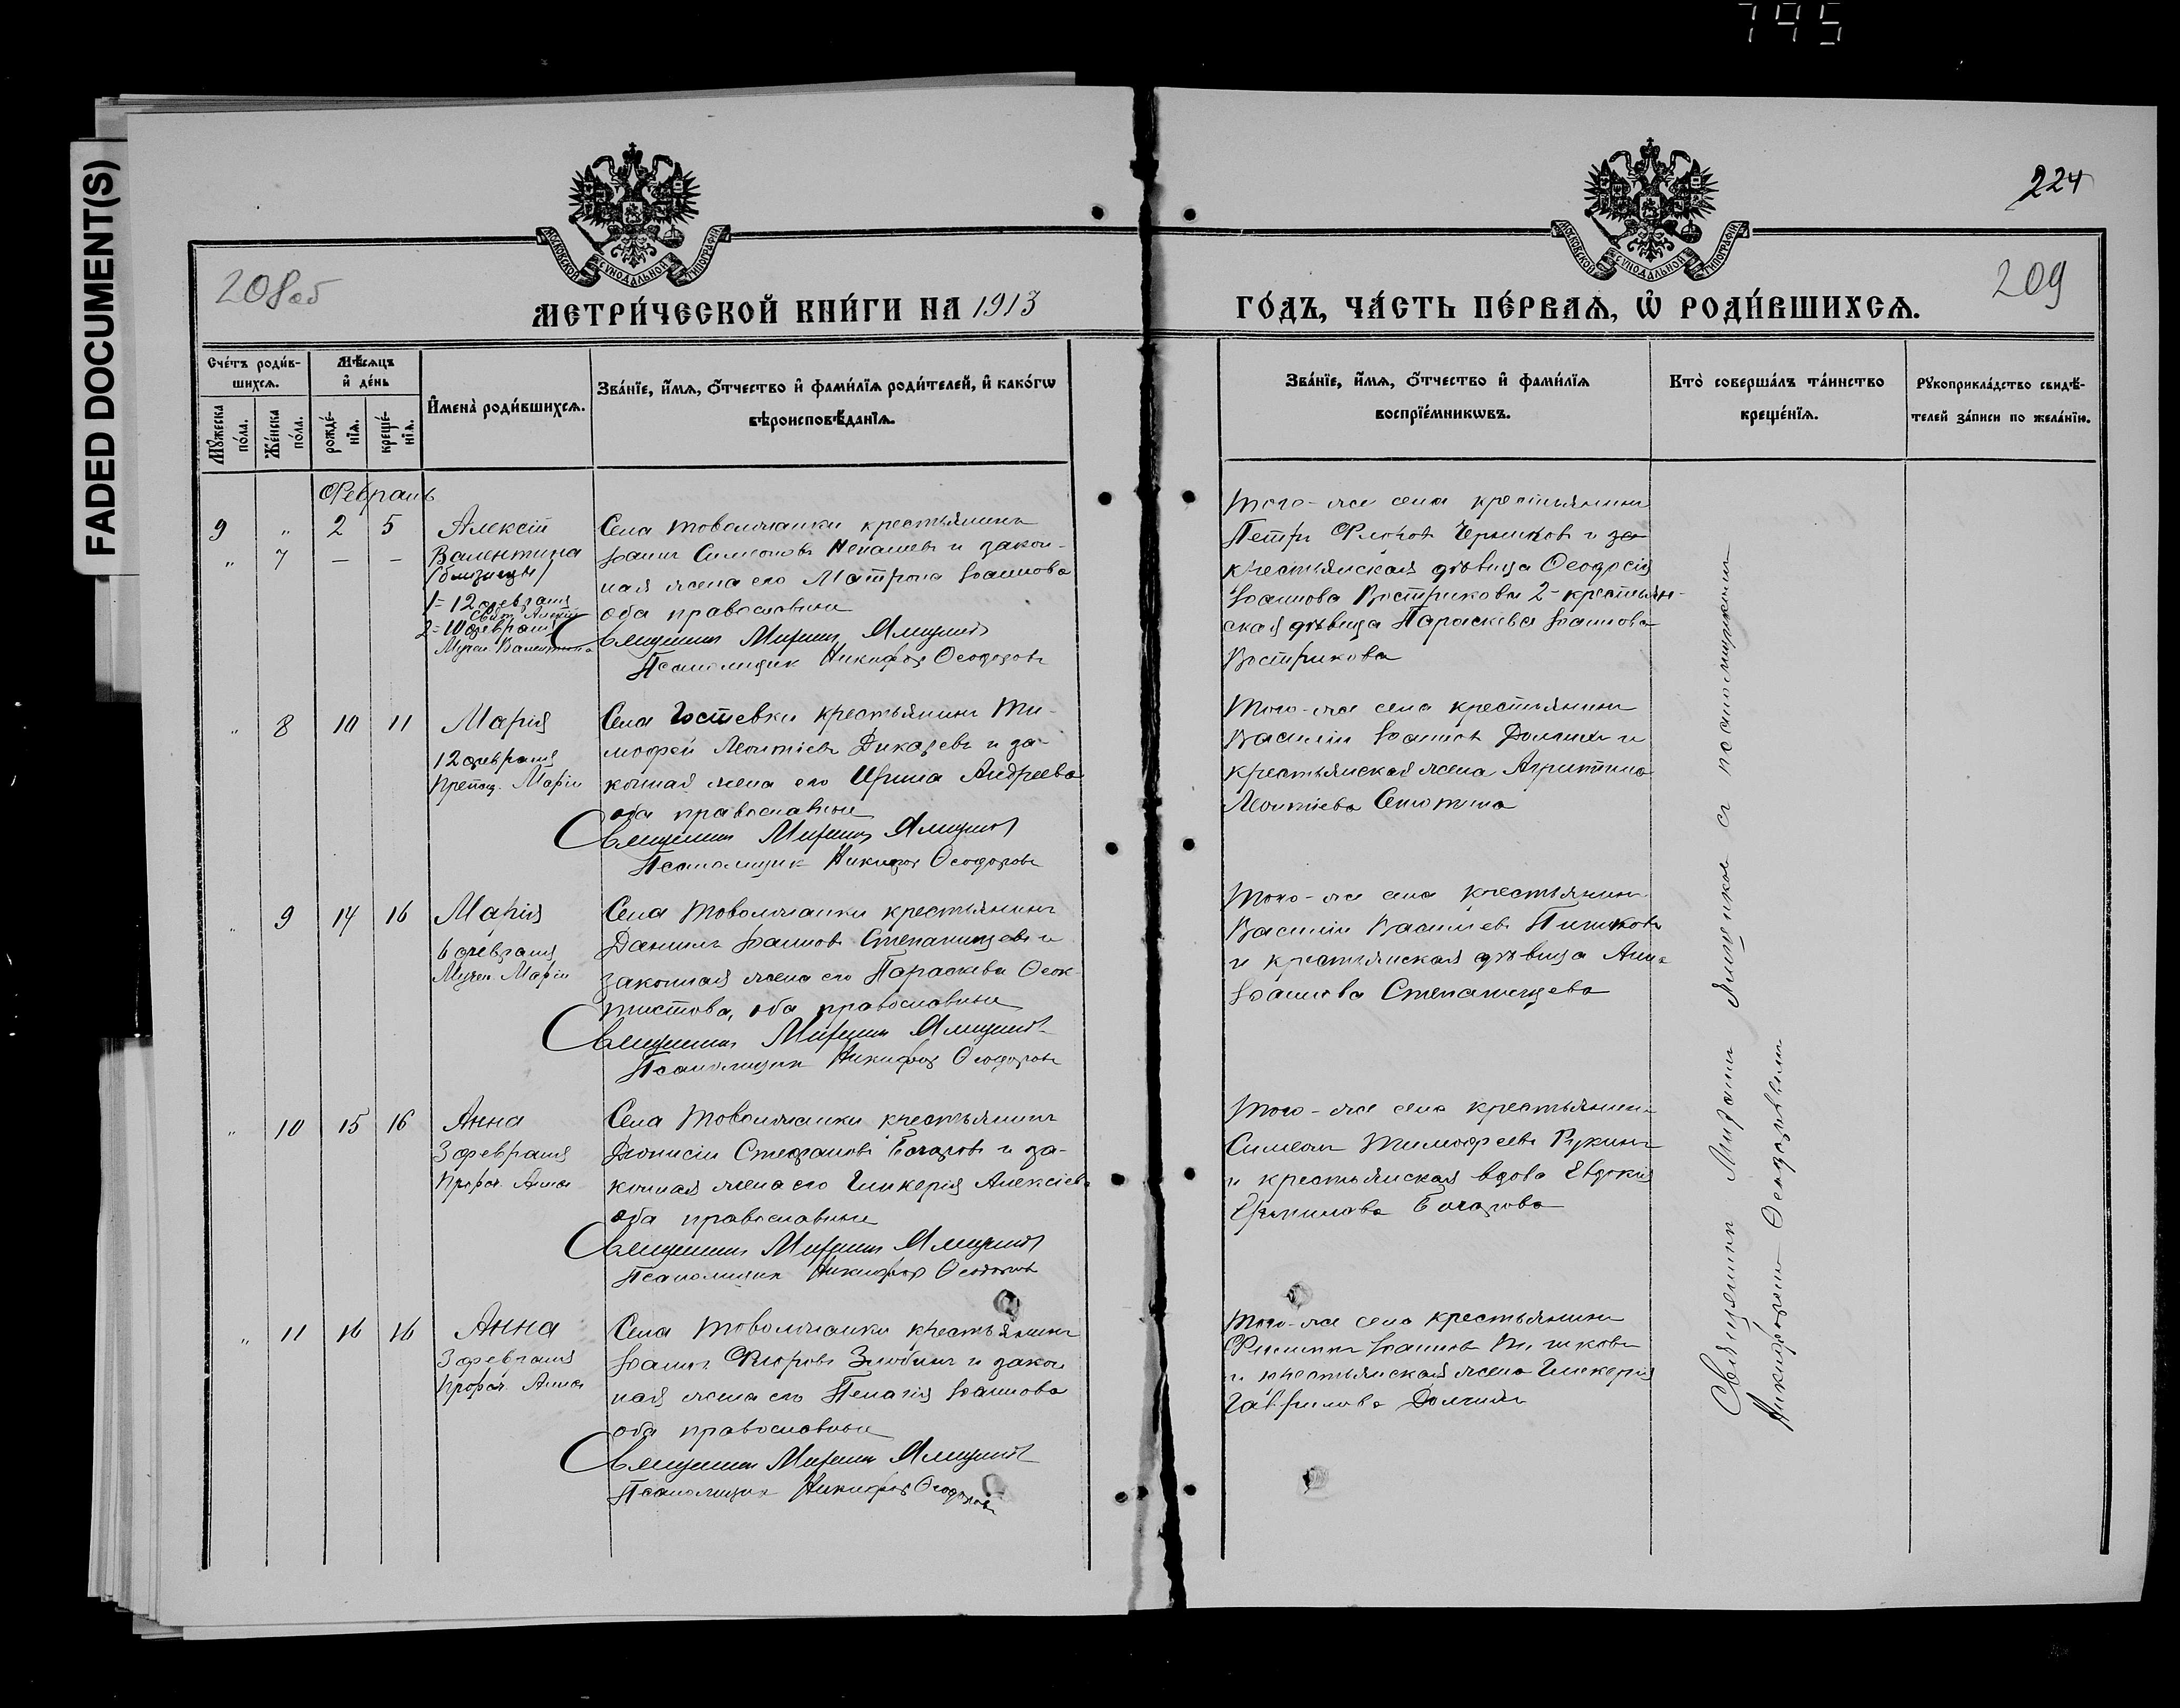 795
FADED DOCUMENT(S)
224
208об
209
МОСКОВСКОЙ СѴНОДАЛЬНОЙ ТИПОГРАФІИ
МОСКОВСКОЙ СѴНОДАЛЬНОЙ ТИПОГРАФІИ
МЕТРИ́ЧЕСКОЙ КНИ́ГИ НА 1913
ГО́ДЪ, ЧА́СТЬ ПЕ́РВАѦ, Ѡ҆ РОДИ́ВШИХСѦ.
Сче́тъ роди́в-
шихсѧ.
Мꙋ́жеска
по́ла.
Же́нска
по́ла.
Мѣ́сѧцъ
и҆ де́нь
рожде́-
нїѧ.
креще́-
нїѧ.
И҆мена̀ роди́вшихсѧ.
Зва́нїе, и҆́мѧ, ѻ҆́тчество и҆ фами́лїѧ роди́телей, и҆ како́гѡ
вѣроисповѣ́данїѧ.
Зва́нїе, и҆́мѧ, ѻ҆́тчество и҆ фами́лїѧ
воспрїе́мникѡвъ.
Кто̀ соверша́лъ та́инство
креще́нїѧ.
Рꙋкоприкла́дство свидѣ́-
телей за́писи по жела́нїю.
Февраль
9 " 2 5 Алексій
" 7 — — Валентина
(близнецы)
1= 12 февраля
Свят. Алексія
2= 10 февраля
Мучен. Валентина
Села Товолжанки крестьянинъ
Іоаннъ Симеоновъ Ненашевъ и закон-
ная жена его Матрона Іоаннова
оба православные
Священникъ Миронъ Ямщиковъ
Псаломщик Никифоръ Ѳеодоровъ
Того-же села крестьянинъ
Петръ Фроловъ Черниковъ и
крестьянская дѣвица Ѳеодосія
Іоаннова Вострикова 2- крестьян-
ская дѣвица Параскева Іоаннова
Вострикова
" 8 10 11 Марія
12 февраля
Препод. Маріи
Села Гостевки крестьянинъ Ти-
мофей Леонтіевъ Дикаревъ и за-
конная жена его Ирина Андреева
оба православные
Священникъ Миронъ Ямщиковъ
Псаломщик Никифоръ Ѳеодоровъ
Того-же села крестьянинъ
Василій Іоанновъ Долгихъ и
крестьянская жена Агриппина
Леонтіева Сенютина
" 9 14 16 Марія
6 февраля
Мучен. Маріи
Села Товолжанки крестьянинъ
Даніилъ Іоанновъ Степанищевъ и
законная жена его Параскева Ѳеок-
тистова, оба православные
Священникъ Миронъ Ямщиковъ
Псаломщик Никифоръ Ѳеодоровъ
Того-же села крестьянинъ
Василій Васильевъ
и крестьянская дѣвица Анна
Іоаннова Степанищева
" 10 15 16 Анна
3 февраля
Пророч. Анна
Села Товолжанки крестьянинъ
Діонисій Стефановъ Бочаровъ и за-
конная жена его Гликерія Алексіева
оба православные
Священникъ Миронъ Ямщиковъ
Псаломщик Никифоръ Ѳеодоровъ
Того-же села крестьянинъ
Симеонъ Тимофеевъ Рукинъ
и крестьянская вдова Евдокія
Бочарова
" 11 16 16 Анна
3 февраля
Пророч. Анна
Села Товолжанки крестьянинъ
Іоаннъ Флоровъ Злобинъ и закон
ная жена его Пелагія Іоаннова
оба православные
Священникъ Миронъ Ямщиковъ
Псаломщик Никифоръ Ѳеодоровъ
Того-же села крестьянинъ
Филиппъ Іоанновъ
и крестьянская жена Гликерія
Гаврилова Долгихъ
Священникъ Миронъ Ямщиковъ съ псаломщикомъ
Никифоромъ Ѳеодоровымъ